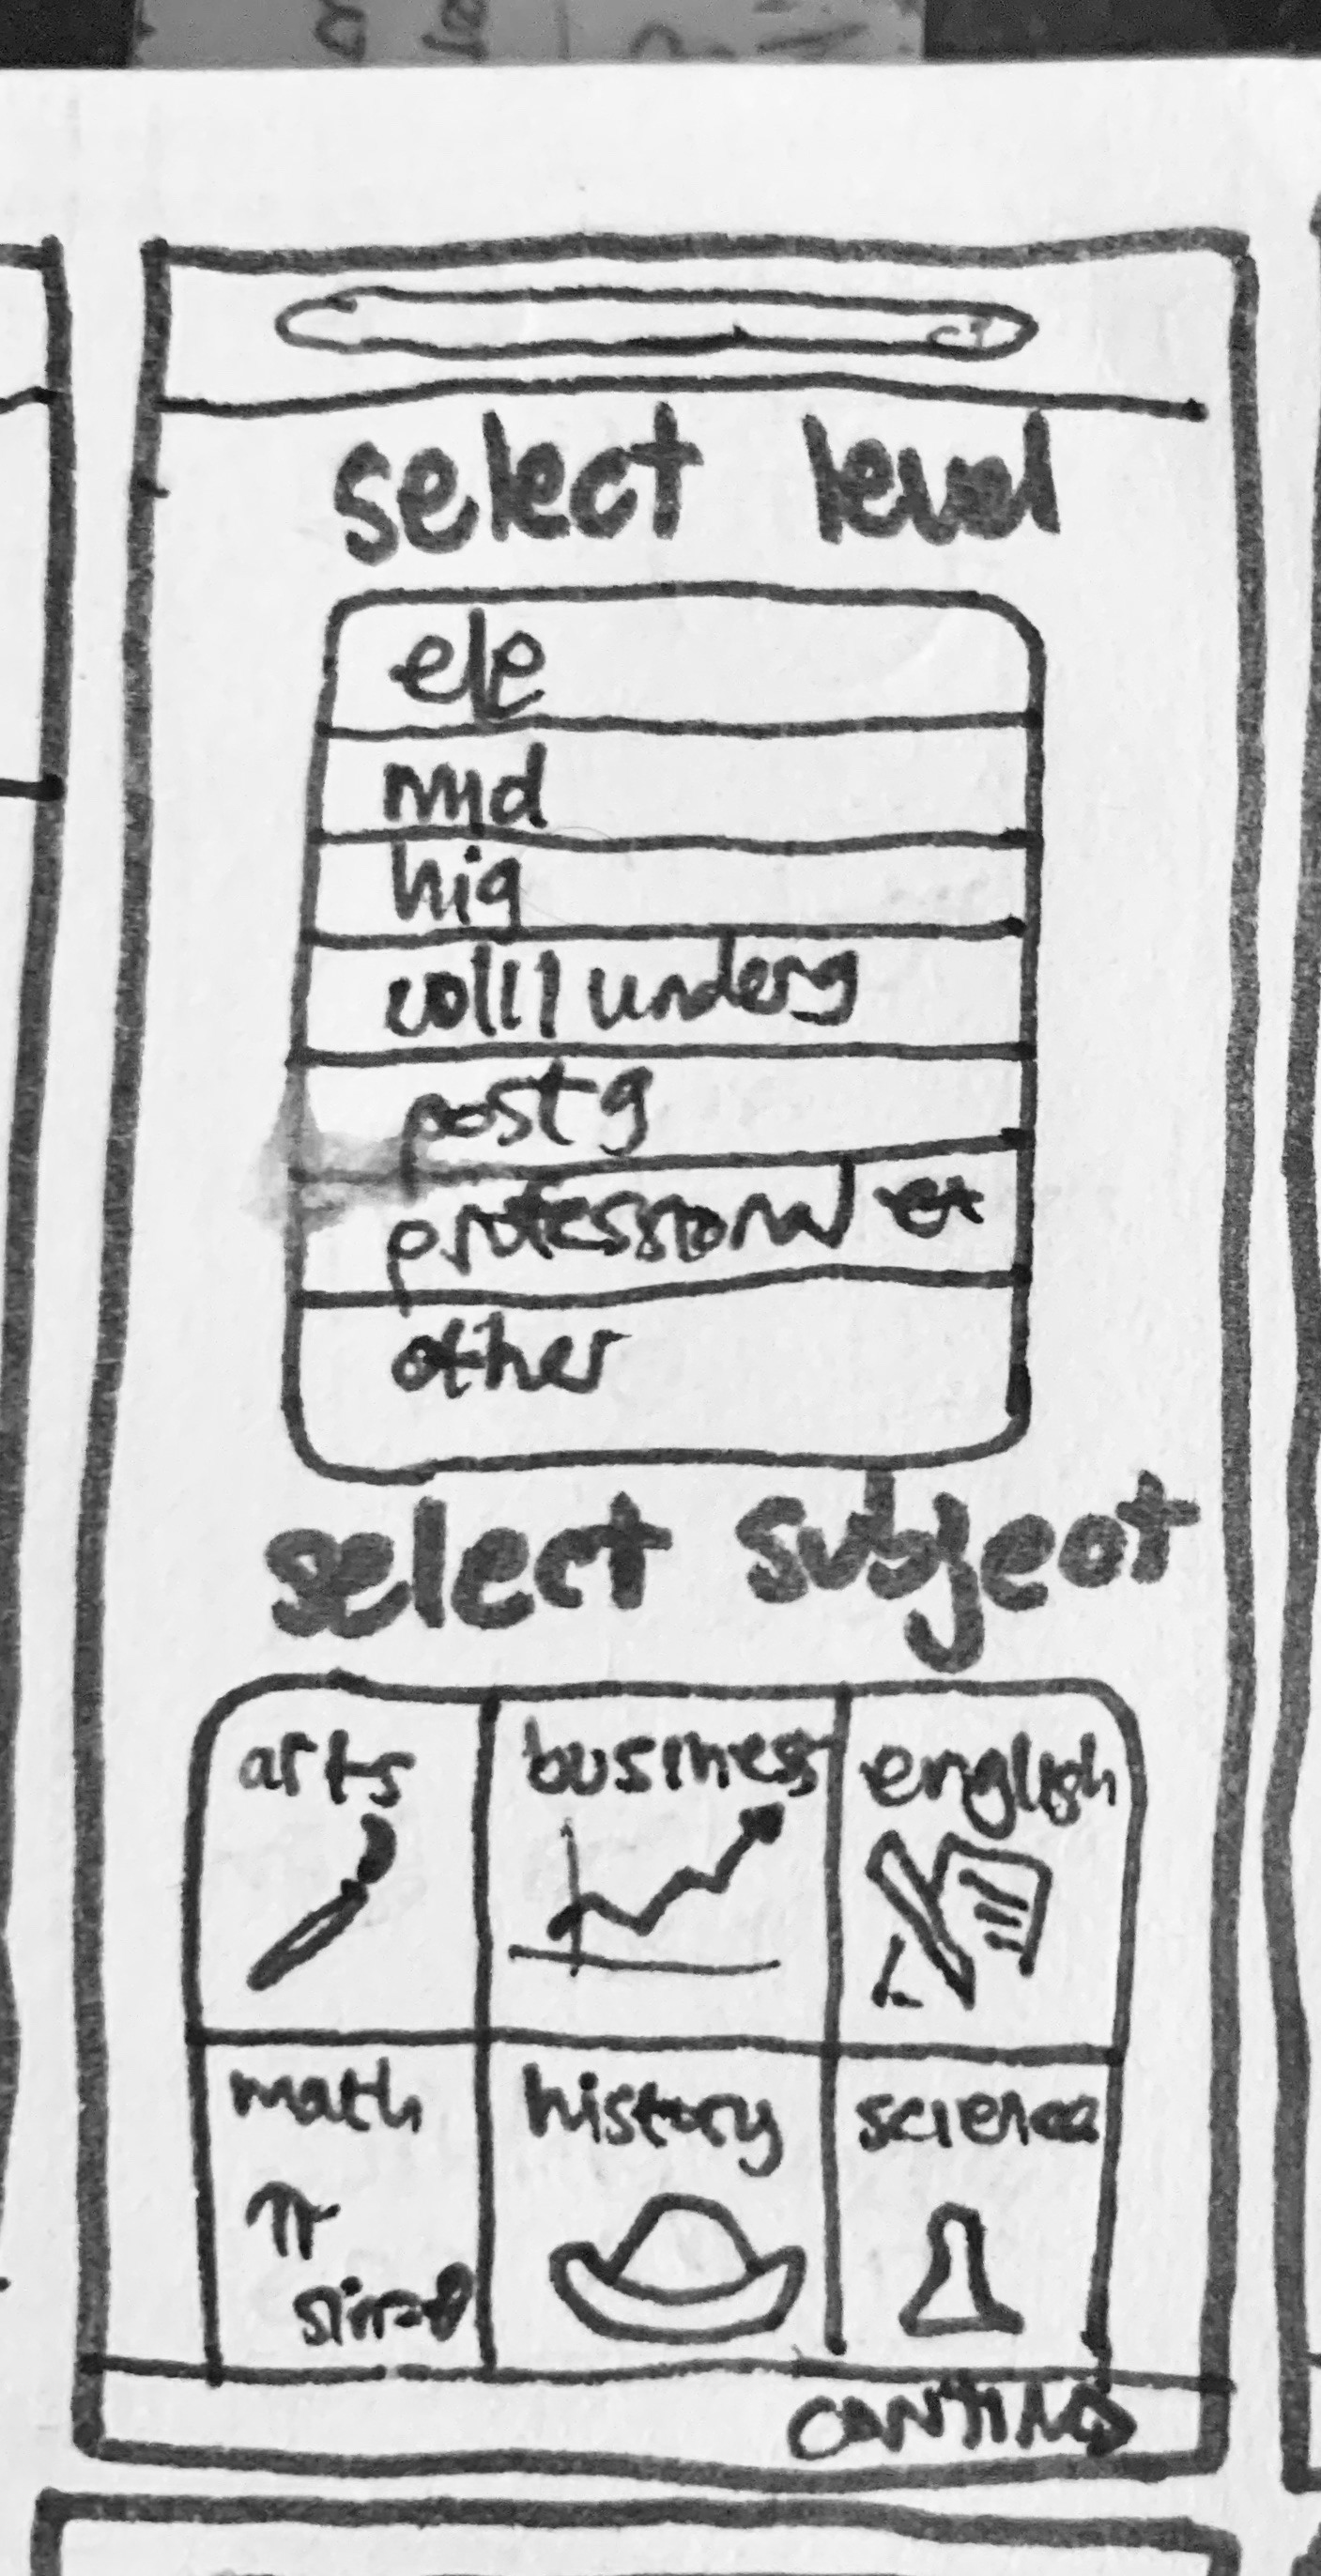 select level
ele
mid
hig
coll | underg
post g
professional ex
other
select subject
arts business english
math history science
π
sin=θ
continue